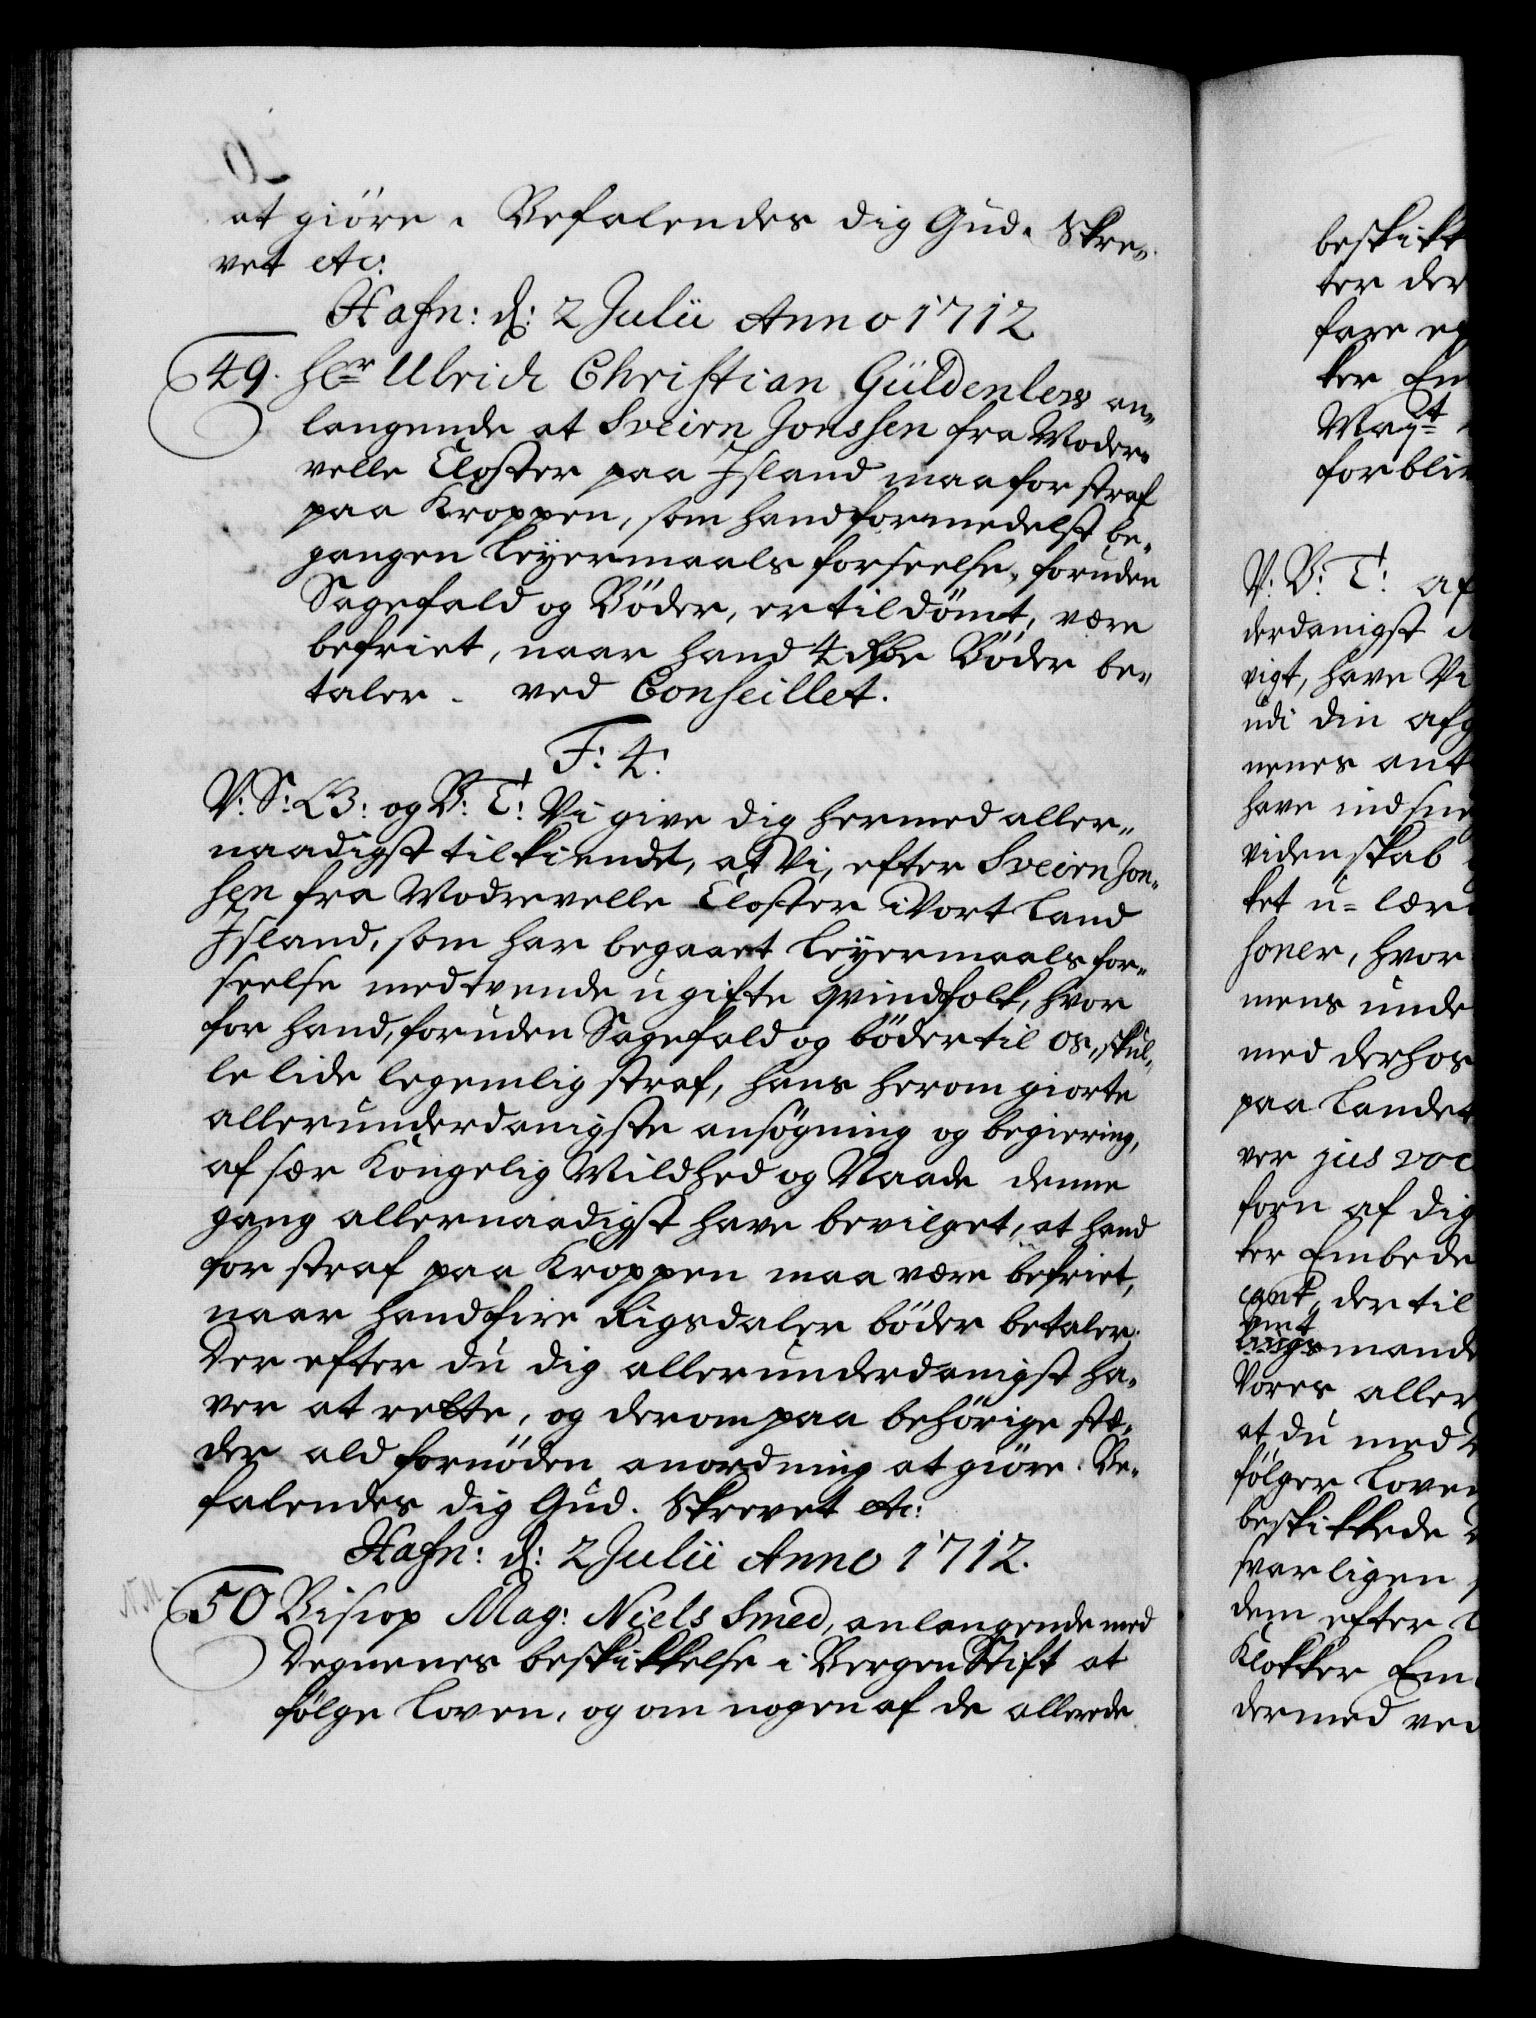 at giöre. Befalendes dig Gud. Skre„
vet etc:
Hafn: d: 2 Julii Anno 1712
49. Hr Ulrich Christian Güldenlew an„
langende at Sveirn Jonssen fra Moder„
velle Closter paa Jsland maa for straf
paa Kroppen, som hand formedelst be„
gangen Leyermaals forseelse, foruden
Sagefald og Böder, er tildömt, være
befriet, naar hand 4 Rdr Böder be„
taler. ved Conseillet.
F: 4:
V: S: G: og B: T: Vi give dig hermed aller„
naadigst tilkiende, at Vi, efter Sveirn Jon„
sen fra Modrevelle Closter i Vort Land
Jsland, som har begaaet Leyermaals for„
seelse med tvende ugifte qvindfolk, hvor
for hand, foruden Sagefald og böder til os, skul„
le lide legemlig straf, hans herom giorte
allerunderdanigste ansögning og begiering,
af sær Kongelig Mildhed og Naade denne
gang allernaadigst have bevilget, at hand
for straf paa Kroppen maa være befriet,
naar hand fire Rigsdaler böder betaler.
Der efter du dig allerunderdanigst ha„
ver at rette, og derom paa behörige stæ„
der ald fornöden anordning at giöre. Be„
falendes dig Gud. Skrevet etc:
Hafn: d: 2 Julii Anno 1712.
50 Bisiop Mag: Niels Smed, anlangende med
Degnenes beskikkelse i Bergen Stift at
fölge Loven, og om nogen af de allerede
beskikt
ter der
fare
ker Em
Mayt
forbliv
V: B: T: af
derdanigst
vigt, have Vi
udi din afg
nenes ant
have indsne
videnskab
ket u=lær
soner, hvor
mens unde
med derhos
paa Landet
ver jus voc
forn af dig
ker Embede
der til
mande
Vores aller
at du med
fölger Loven
beskikkede
svarligen
dem efter
Klokker Em
dermed ved